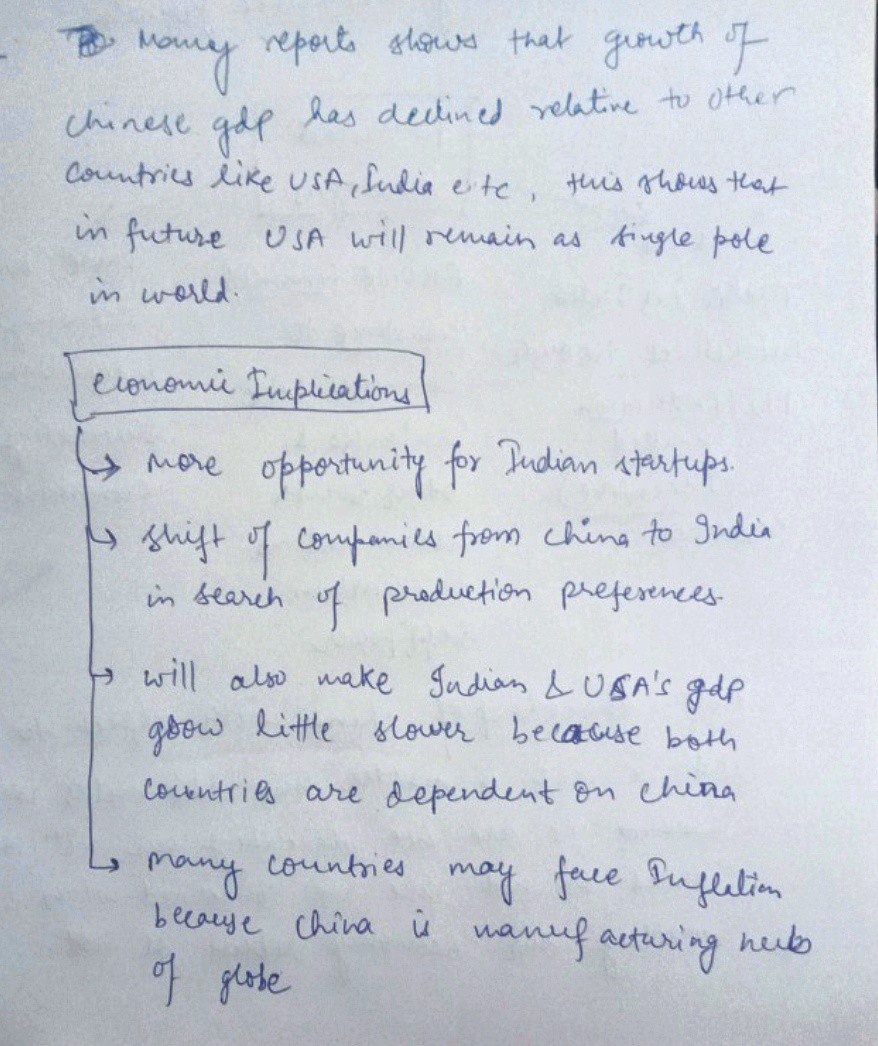 Many reports shows that growth of
chinese gdp has declined relative to other
countries like USA, India etc, this shows that
in future USA will remain as single pole
in world.
economic Implications
→ more opportunity for Indian startups.
→ shift of companies from china to India
in search of production preferences.
→ will also make Indian & USA's gdp
grow little slower because both
countries are dependent on china
→ many countries may face Inflation
because china is manufacturing hub
of globe